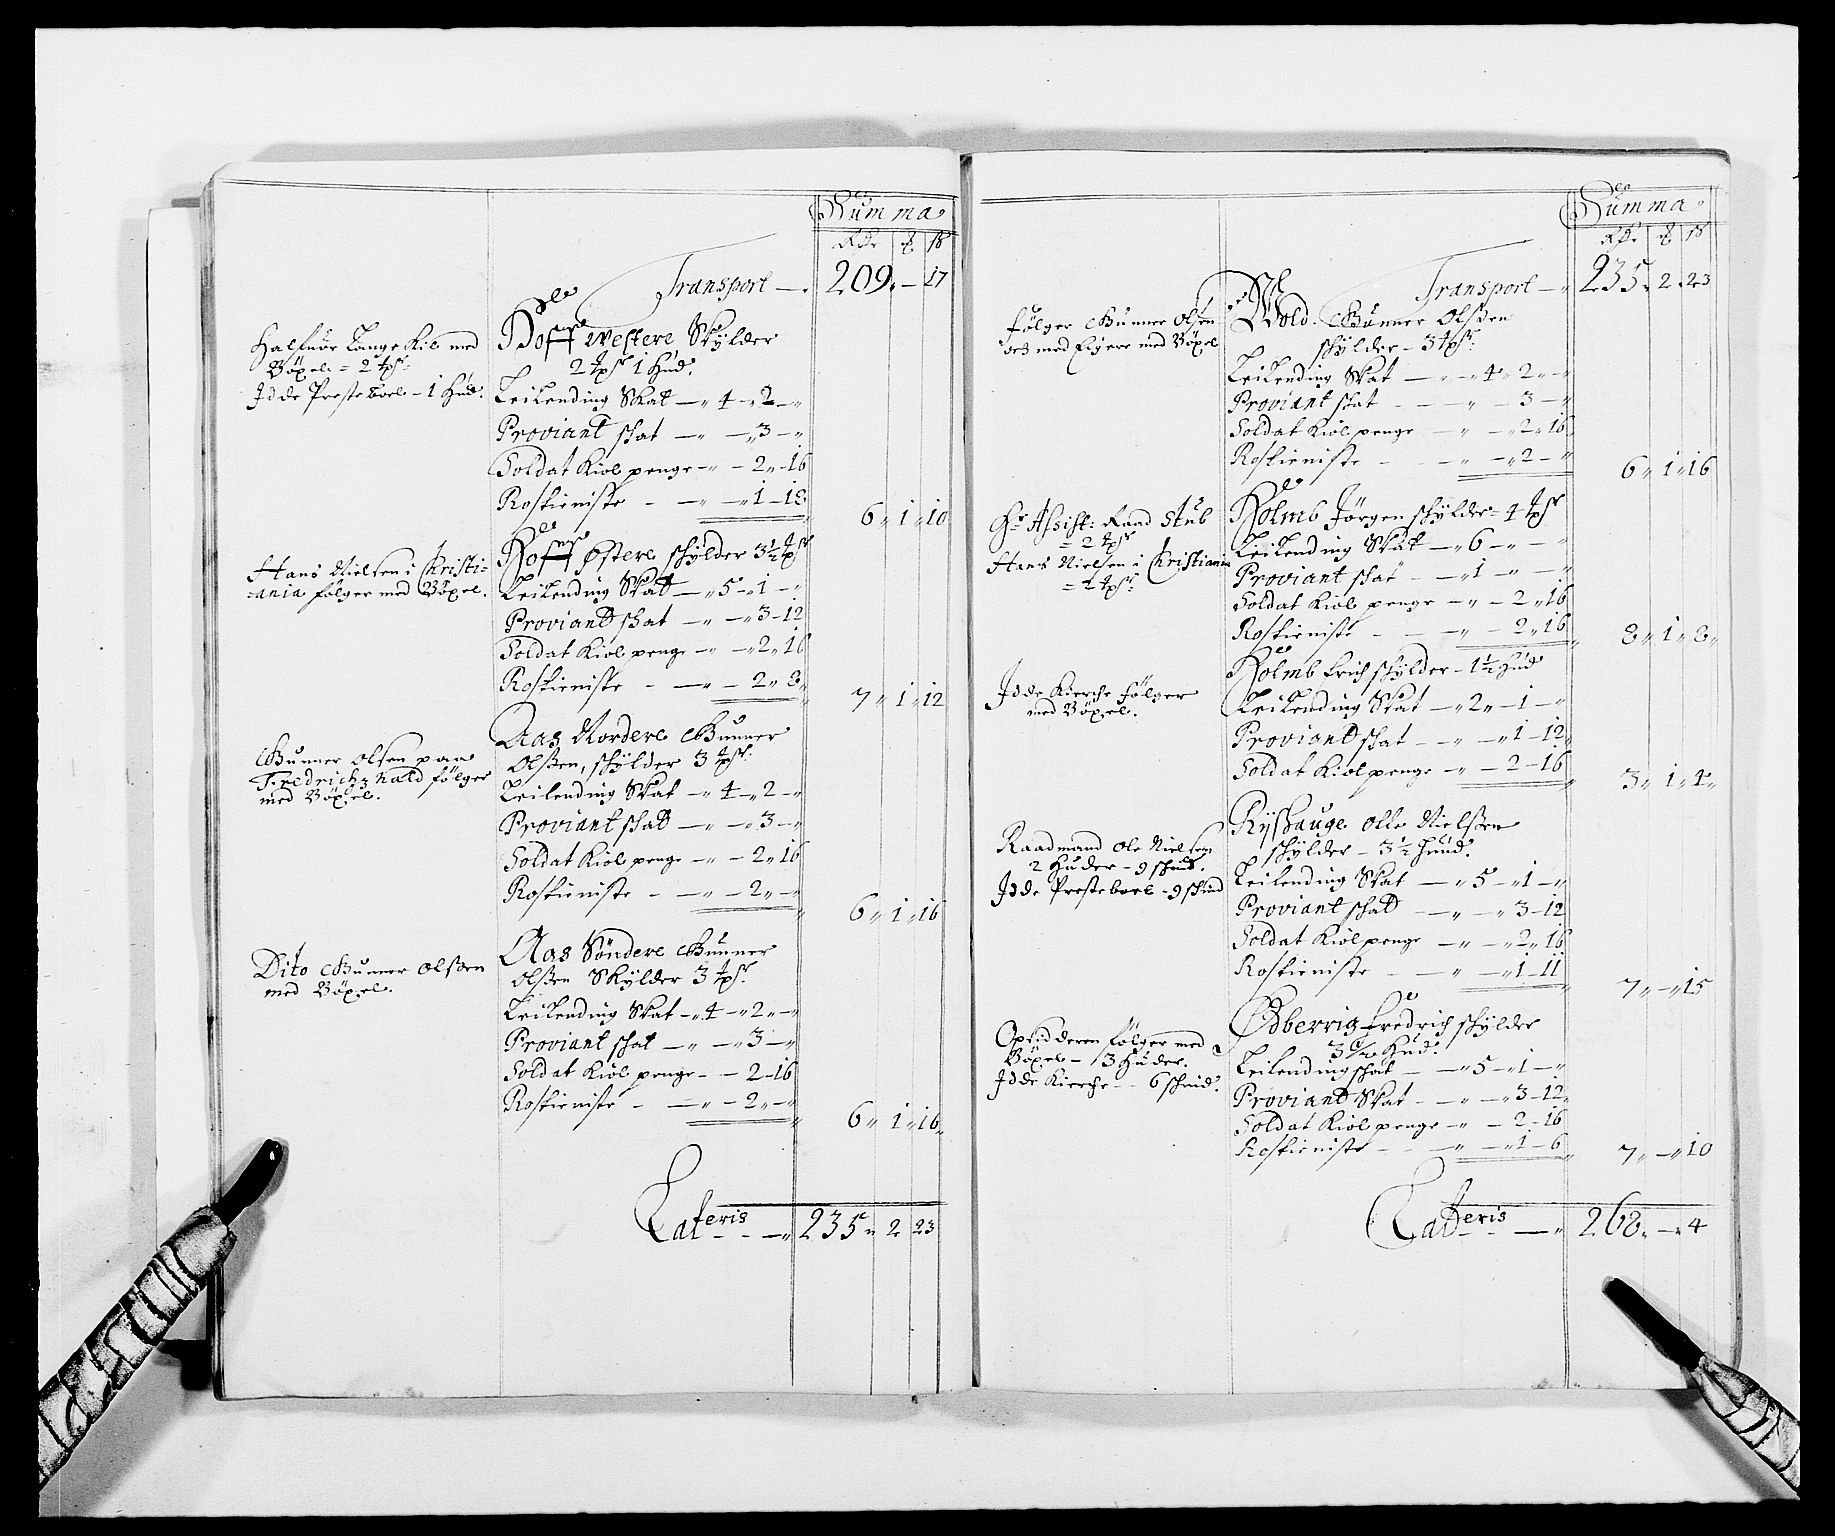 Summa
Rdr ₰ ß
Transport — 209 „ — 17
Halfuor Lange Kil med
Böxel = 2 tpſr
Idde Presteboel – 1 Hud.
Hoff westere Skylder
2 tpſr 1 Hud.
Leilending Skat — „ 4 — 2 — „
Proviant skat — „ — „ 3 — „
Soldat Kiol penge — „ — 2 „ 16
Rostieniste - — „ — „ 1 — 18
6 „ 1 „ 10
Hans Nielsen i Christi=
=ania følger med Böxel.
Hoff Østere skylder 3½ tpſr
Leilending Skatt — „ 5 — „ 1 — „
Proviant skat — „ — „ 3 — 12
Soldat Kiol penge — „ — „ 2 „ 16
Rostieniste - — „ — 2 „ 8
7 „ 1 „ 12
Gunner Olsen paa
Fredrichshald følger
med Böxel.
Aas Nordere Gunner
Olsen, skylder 3 tpſr.
Leilending Skat — „ 4 — „ 2 — „
Proviant skat — „ — „ 3 — „
Soldat Kiol penge — „ — 2 „ 16
Rostieniste - — „ — 2 „ — „
6 „ 1 „ 16
Dito Gunner Olsen
med Böxel.
Aas Søndere Gunner
Olsen Skylder 3 tpſr.
Leilending Skat — „ 4 — „ 2 „ — „
Proviant skat — „ — „ 3 — „
Soldat Kiol penge — — 2 — 16
Rostieniste - — „ — 2 „ — „
6 „ 1 „ 16
Lateris — 235 „ 2 23
Summa
Rdr ₰ ß
Transport — 235 „ 2 „ 23
følger Gunner Olsen
med Böxel
Wold Gunner Olsen
skylder – 3 tpſr.
Leilending Skat — „ 4 „ 2 „ — „
Proviant skat — „ — 3 — „
Soldat Kiol penge — „ — „ 2 „ 16
Rostieniste - — „ — „ 2 — „
6 „ 1 „ 16
Hr Assist: Raad Stub
= 2 tpſr
Hans Nielsen i Christiania
= 2 tpſr.
Holmb Jörgen skylder – 4 tpſr
Leilending Skat — „ 6 — „ — „
Proviant skat — „ 1 — „ — „
Soldat Kiol penge — „ — 2 „ 16
Rostieniste - — „ — 2 „ 16
8 „ 1 „ 8 „
Idde Kierche følger
med Böxel.
Holmb Erich skylder – 1½ Hud
Leilending Skat — „ 2 „ — 1 — „
Proviant skat — — „ — „ 1 — 12
Soldat Kiol penge — „ — 2 — 16
3 „ 1 „ 4 „
Raadmand Ole Nielsen
2 Huder – 9 skind.
Idde Presteboel – 9 skind
Ryshauge Olle Nielsen
skylder – 3½ Huud.
Leilending Skat — „ 5 — „ 1 — „
Proviant skat — „ — „ 3 — 12
Soldat Kiol penge — „ — „ 2 „ 16
Rostieniste - — „ — „ 1 — 11
7 „ — „ 15
Opsidderen følger med
Böxel – 3 Huder.
Idde Kierche – 6 skind.
Odberrig Fredrich skylder
Hud.
Leilending skat — „ 5 — „ 1 — „
Proviant Skat — „ — „ 3 — 12
Soldat Kiol penge — „ — 2 — 16
Rostieniste - — „ — „ 1 — 6
7 „ — „ 10
Lateris — 268 „ — „ 4